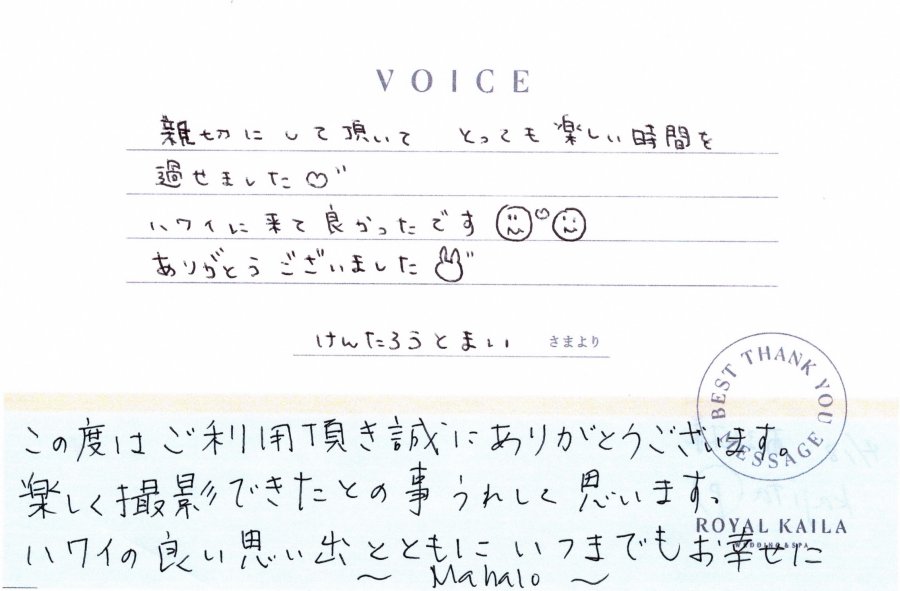 VOICE
親切にして頂いて とっても楽しい時間を
過せました♡"
ハワイに来て良かったです
ありがとうございました
けんたろうとまい さまより
BEST THANK YOU MESSAGE
この度はご利用頂き誠にありがとうございます。
楽しく撮影できたとの事うれしく思います。
ROYAL KAILA
WEDDING & SPA
ハワイの良い思い出とともにいつまでもお幸せに
〜 Mahalo 〜